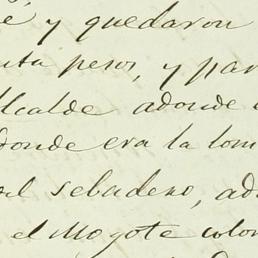 e y quedaron
nta pesos, y par
Alcalde adonde
donde era la lom
el sebadero, ad
el Mogote colo